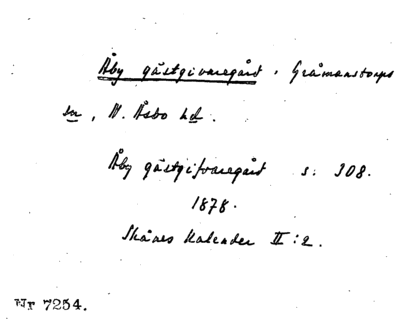 Åby gästgivaregård, Gråmanstorps
sn, N. Åsbo hd.
Åby gästgifvaregård s. 308.
1878.
Skånes Kalender II:2.
Nr 7254.